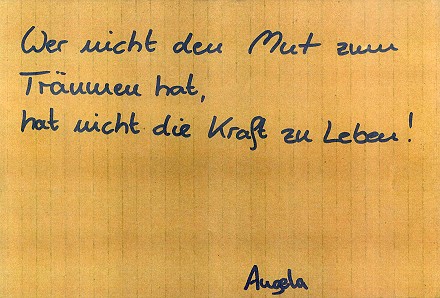 Wer nicht den Mut zum
Träumen hat,
hat nicht die Kraft zu Leben!
Angela